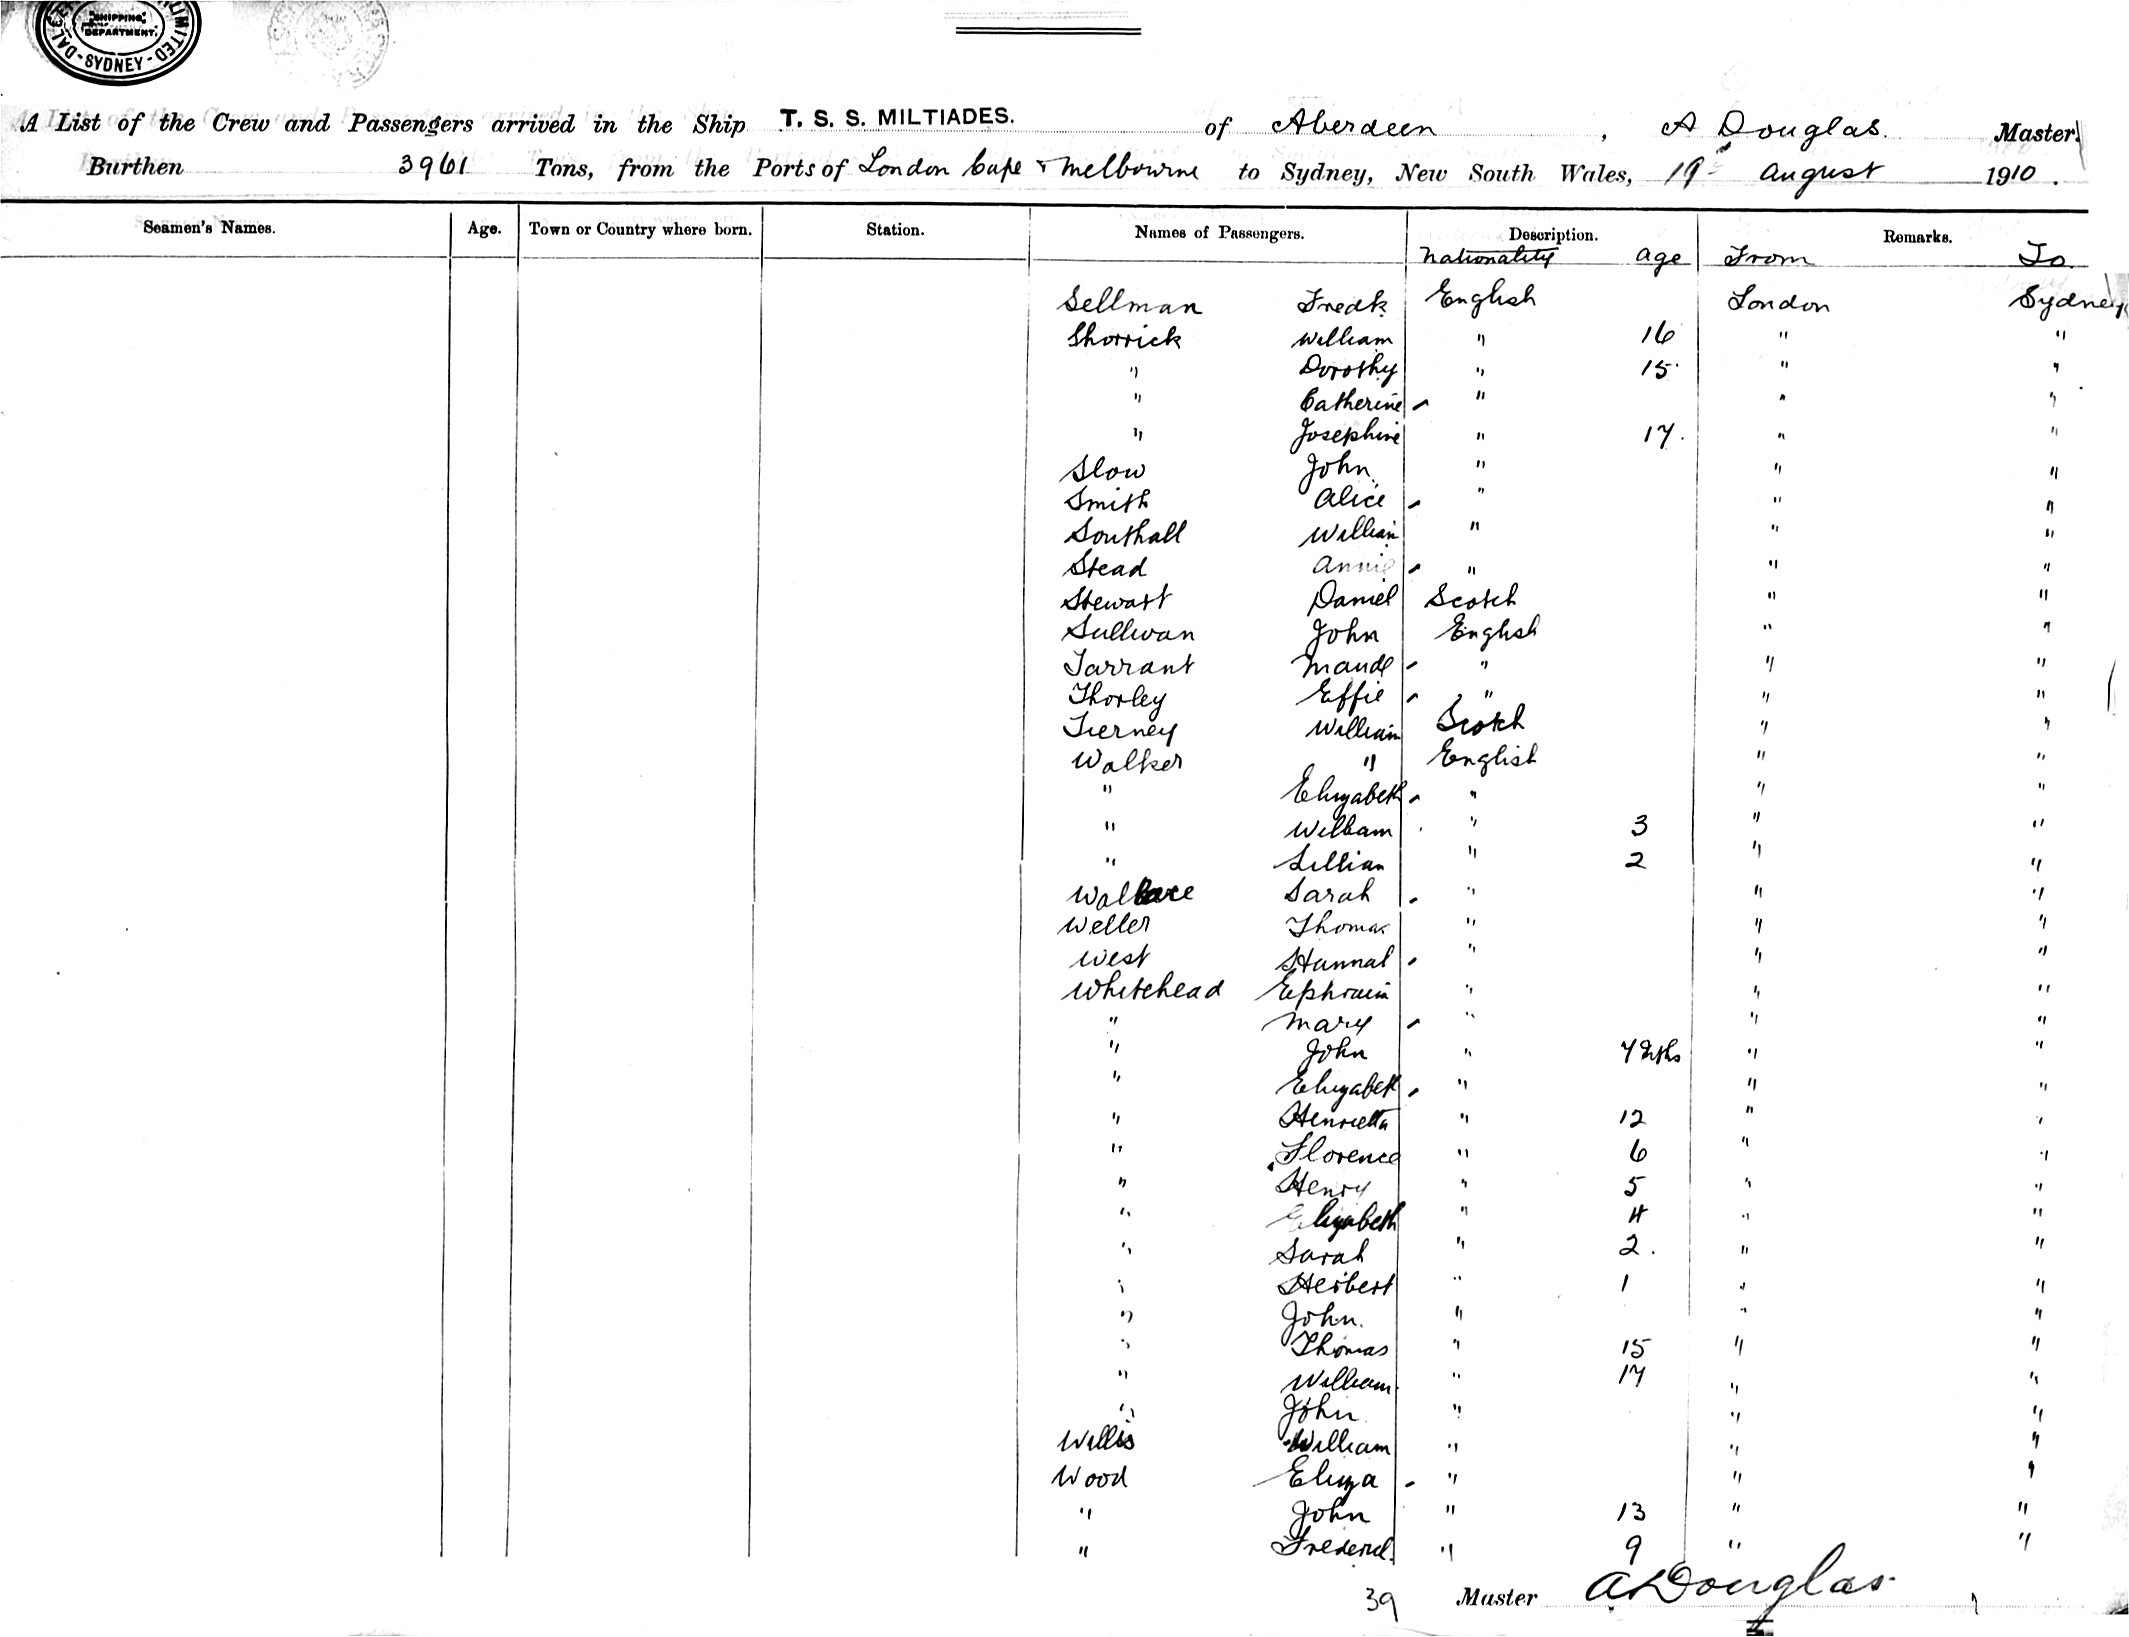 SHIPPING
DEPARTMENT.
LIMITED
- SYDNEY -
A List of the Crew and Passengers arrived in the Ship T. S. S. MILTIADES. of Aberdeen, A Douglas. Master.
Burthen 3961 Tons, from the Ports of London Cape & Melbourne to Sydney, New South Wales, 19th August 1910.
Seamen's Names. Age. Town or Country where born. Station. Names of Passengers. Description. Remarks.
Nationality age From To
Sellman Fredk English London Sydney
Shorrick William " 16 " "
" Dorothy " 15 " "
" Catherine " " "
" Josephine " 17 " "
Slow John " " "
Smith Alice " " "
Southall William " " "
Stead Annie " " "
Stewart Daniel Scotch " "
Sullivan John English " "
Tarrant Maude " " "
Thorley Effie " " "
Tierney William Scotch " "
Walker " English " "
" Elizabeth " " "
" William " 3 " "
" Lillian " 2 " "
Wallace Sarah " " "
Weller Thomas " " "
West Hannah " " "
Whitehead Ephraim " " "
" Mary " " "
" John " 7 Mths " "
" Elizabeth " " "
" Henrietta " 12 " "
" Florence " 6 " "
" Henry " 5 " "
" Elizabeth " 4 " "
" Sarah " 2 " "
" Herbert " 1 " "
" John. " " "
" Thomas " 15 " "
" William " 17 " "
" John " " "
Willis William " " "
Wood Eliza " " "
" John " 13 " "
" Frederick " 9 " "
39 Master A Douglas